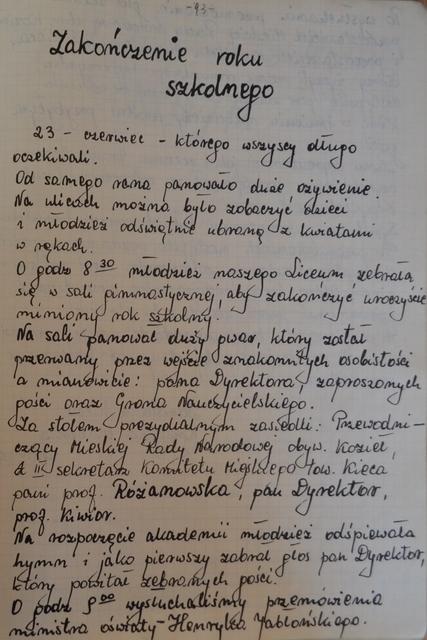 -93-
Zakończenie roku
szkolnego
23 - czerwiec - którego wszyscy długo
oczekiwali.
Od samego rana panowało duże ożywienie.
Na ulicach można było zobaczyć dzieci
i młodzież odświętnie ubraną z kwiatami
w rękach.
O godz 8 30 młodzież naszego Liceum zebrała
się w sali gimnastycznej, aby zakończyć uroczyście
miniony rok szkolny.
Na sali panował duży gwar, który został
przerwany przez wejście znakomitych osobistości
a mianowicie: pana Dyrektora, zaproszonych
gości oraz Grona Nauczycielskiego.
Za stołem prezydialnym zasiedli: Przewodni-
czący Miejskiej Rady Narodowej obyw. Kozieł,
III sekretarz Komitetu Miejskiego tow. Kieca
pani prof. Różianowska, pan Dyrektor,
prof. Kiwior.
Na rozpoczęcie akademii młodzież odśpiewała
hymn i jako pierwszy zabrał głos pan Dyrektor,
który powitał zebranych gości.
O godz 9 00 wysłuchaliśmy przemówienia
ministra oświaty - Henryka Jabłońskiego.